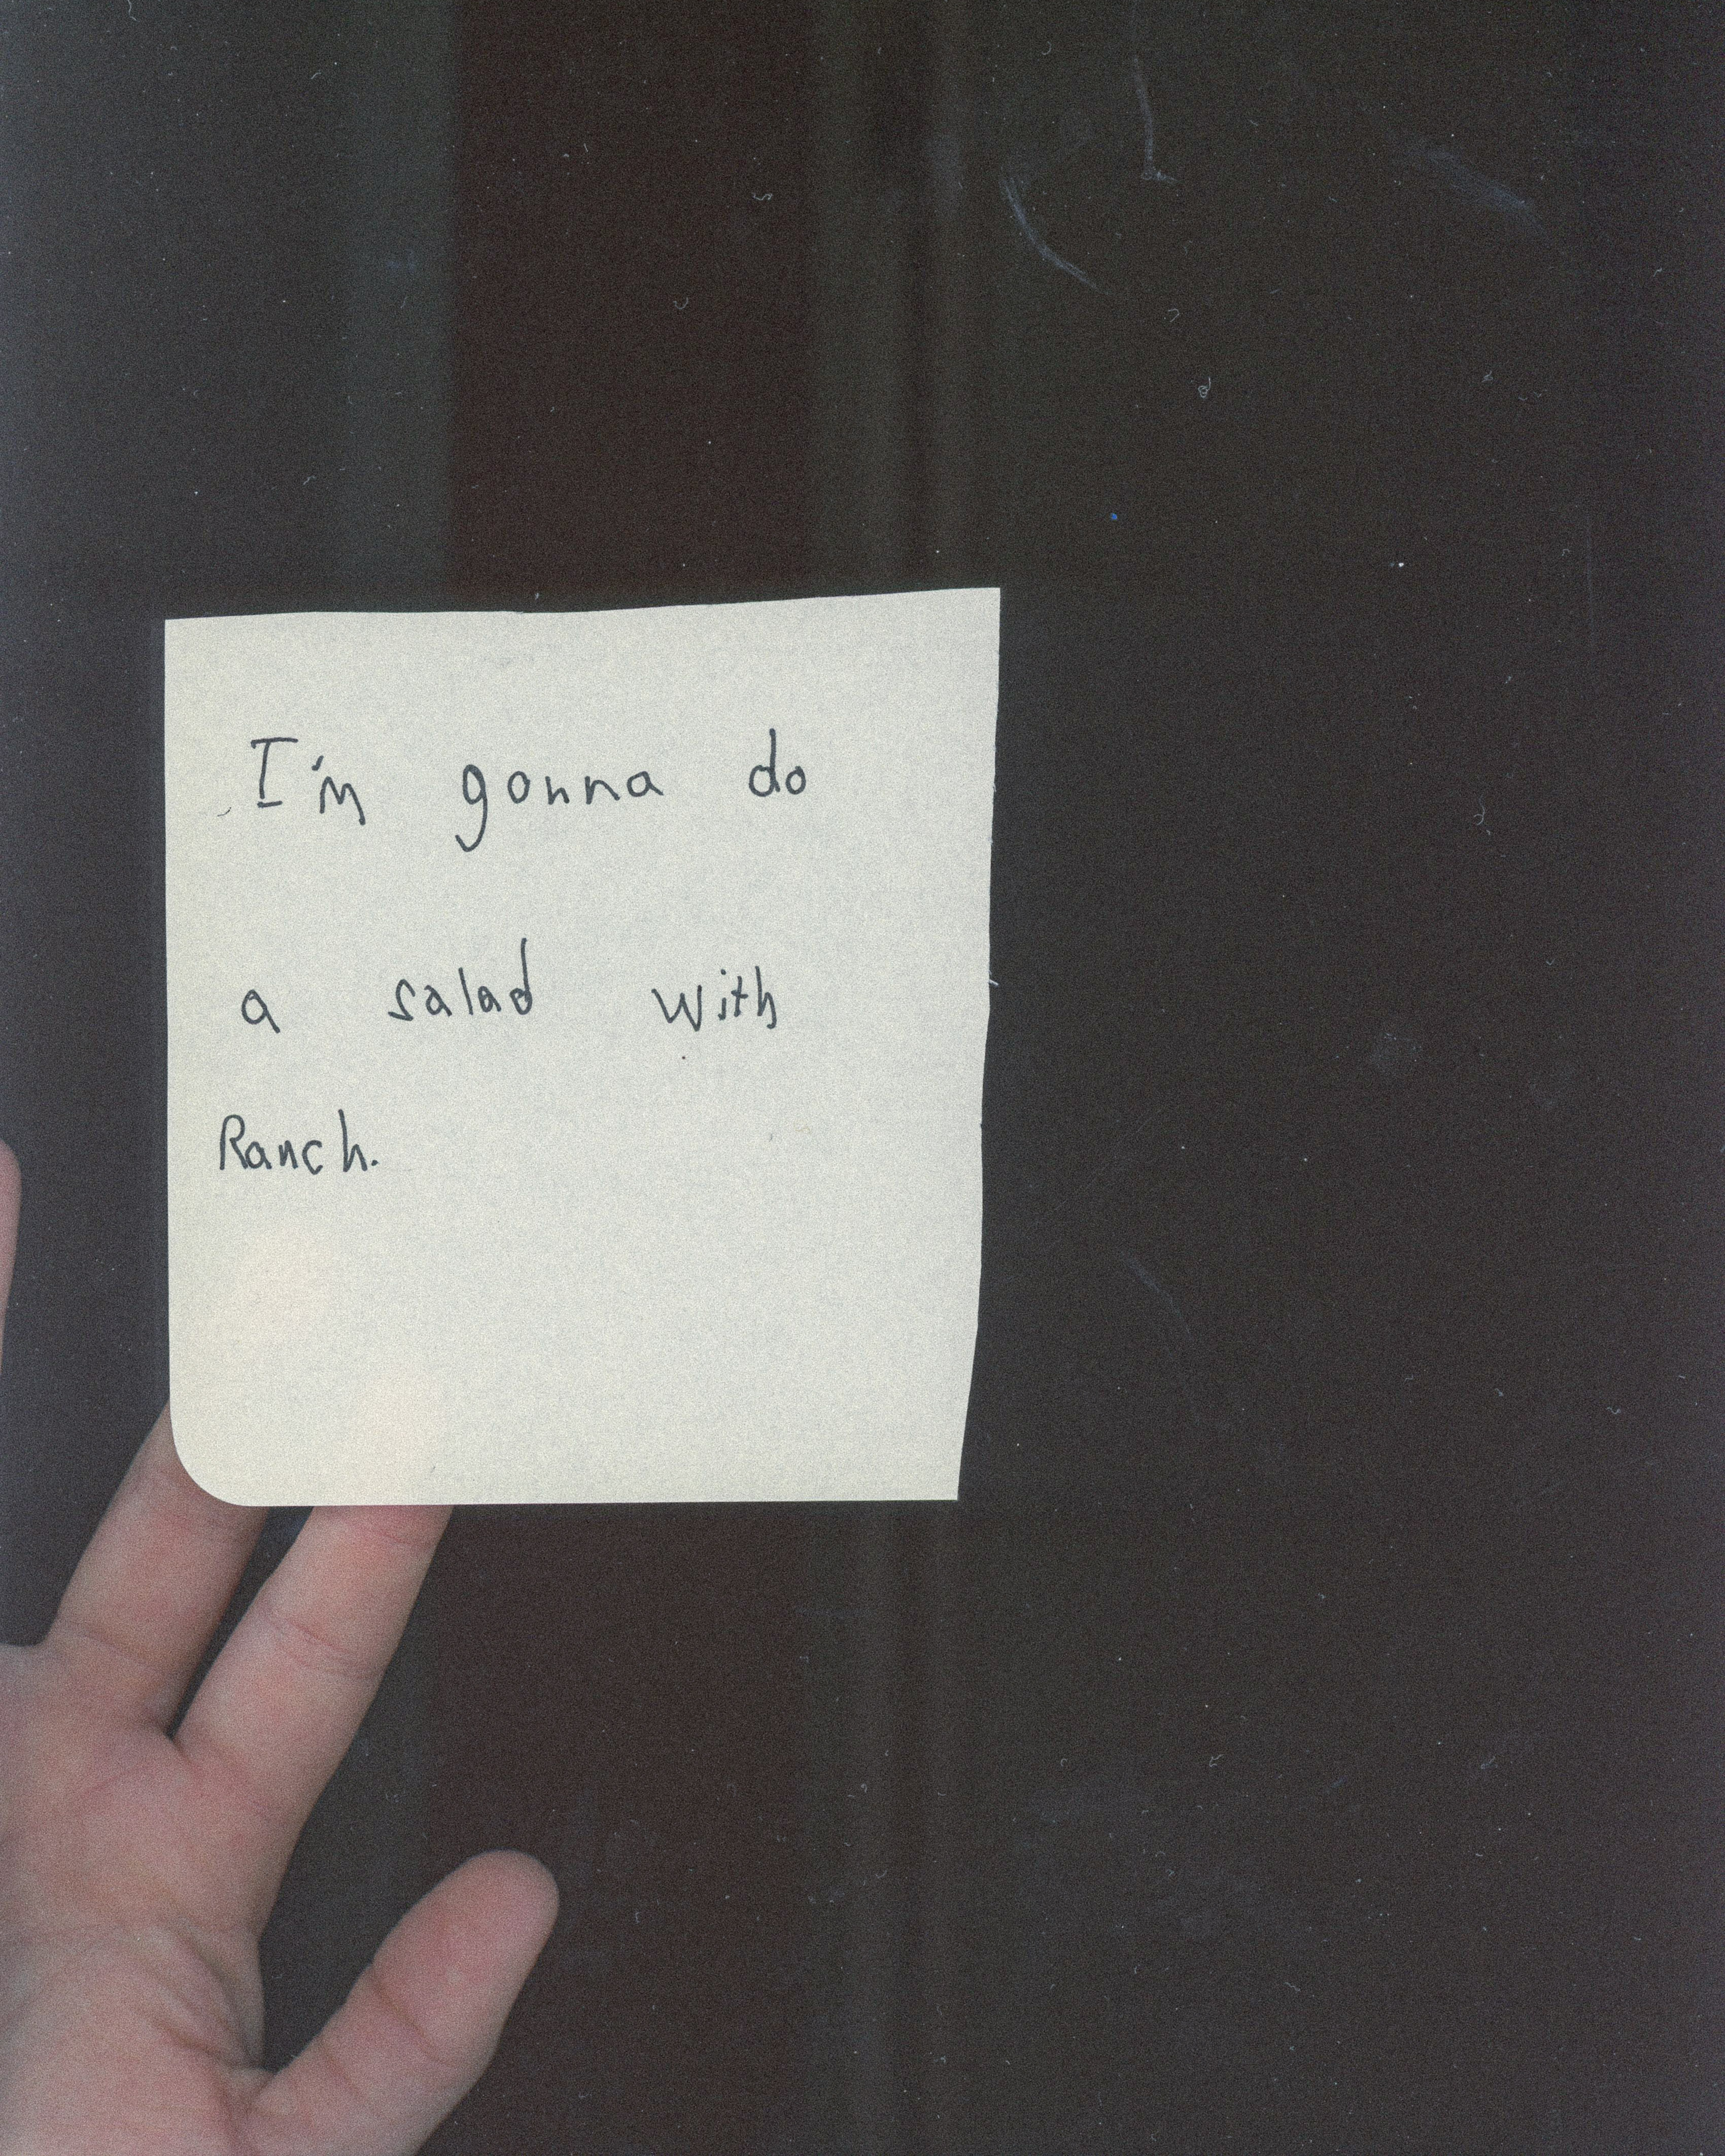 I'm gonna do
a salad with
Ranch.